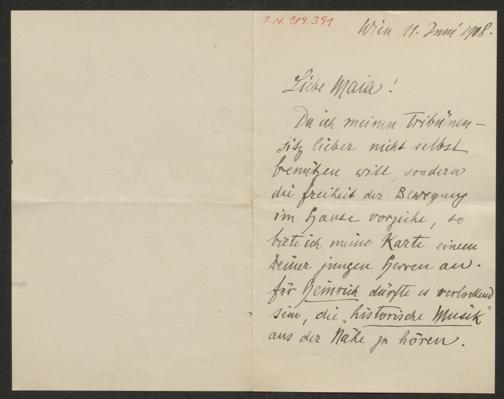 I.N. 189.391
Wien 11. Juni 1908.
Liebe Maia!
Da ich meinen Tribünen-
sitz lieber nicht selbst
benützen will, sondern
die Freiheit der Bewegung
im Hause vorziehe, so
biete ich meine Karte einem
Deiner jungen Herren an.
Für Heinrich dürfte es verlockend
sein, die „historische Musik"
aus der Nähe zu hören.